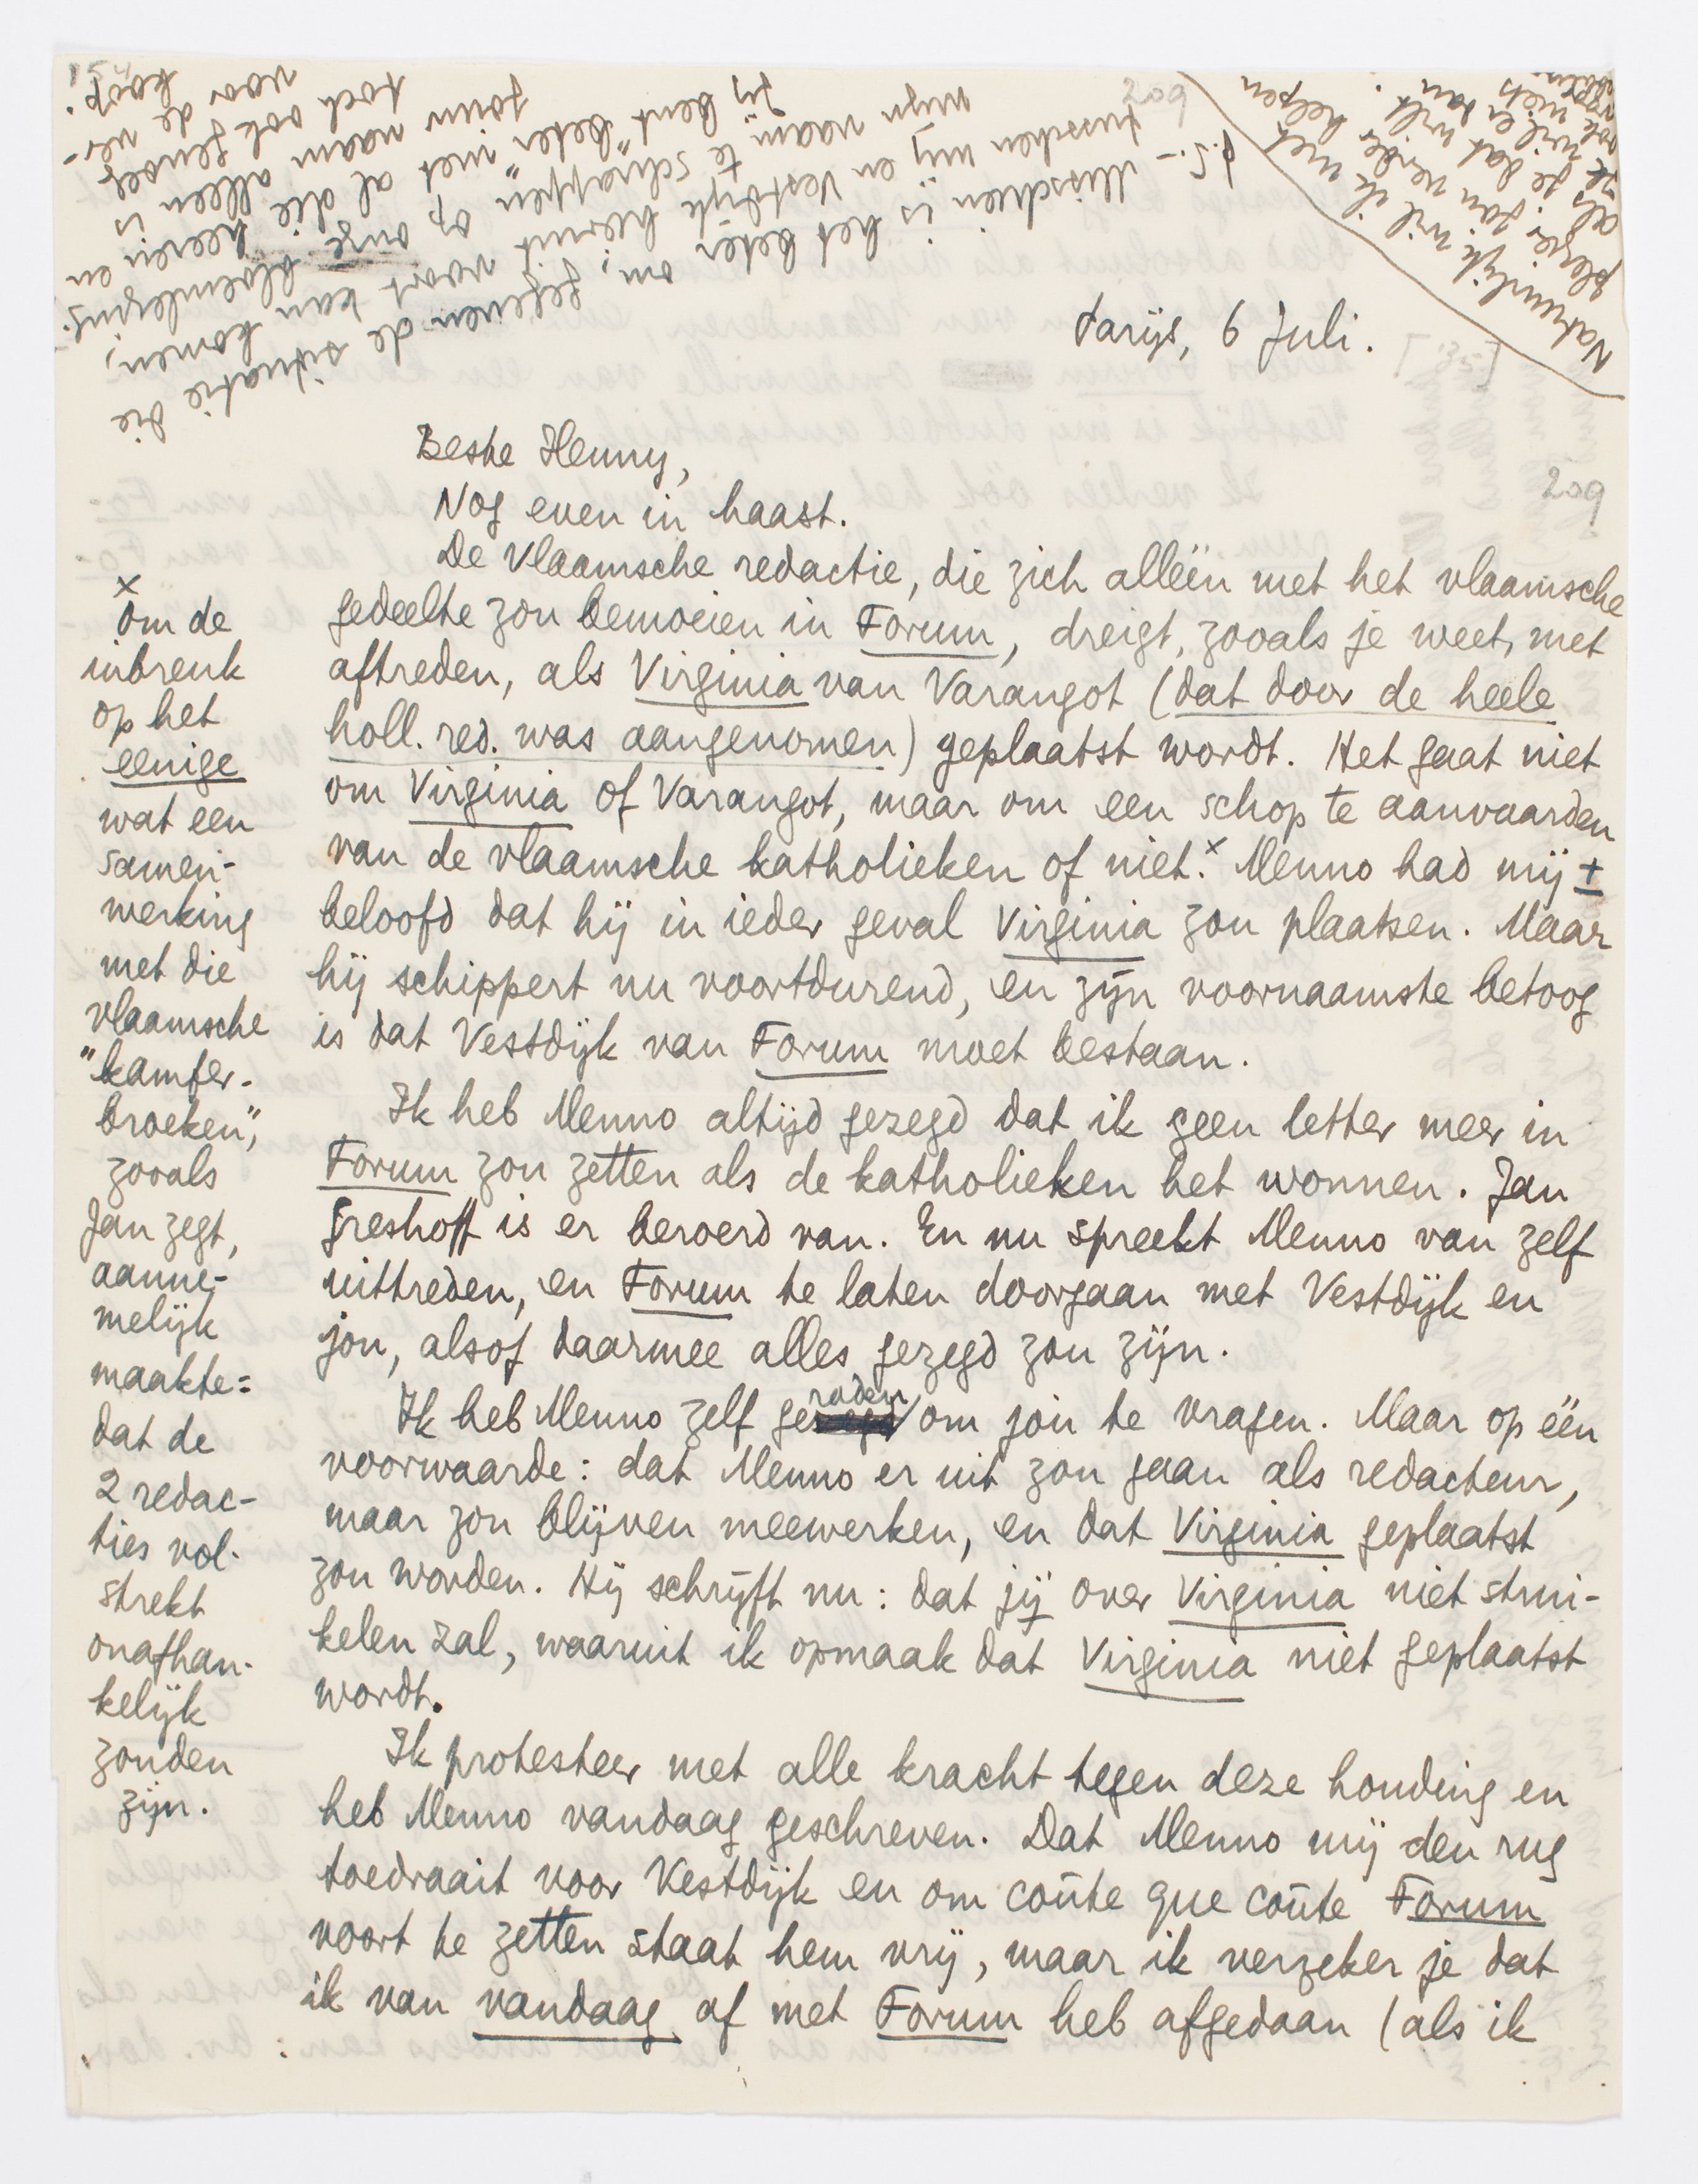 209
Parijs, 6 Juli.
[35]
209
Beste Henny,
Nog even in haast.
De Vlaamsche redactie, die zich alléén met het vlaamsche
gedeelte zou bemoeien in Forum, dreigt, zooals je weet, met
aftreden, als Virginia van Varangot (dat door de heele
holl. red. was aangenomen) geplaatst wordt. Het gaat niet
om Virginia of Varangot, maar om een schop te aanvaarden
van de vlaamsche katholieken of niet.x Menno had mij ±
beloofd dat hij in ieder geval Virginia zou plaatsen. Maar
hij schippert nu voortdurend, en zijn voornaamste betoog
is dat Vestdijk van Forum moet bestaan.
Ik heb Menno altijd gezegd dat ik geen letter meer in
Forum zou zetten als de katholieken het wonnen. Jan
Greshoff is er beroerd van. En nu spreekt Menno van zelf
uittreden, en Forum te laten doorgaan met Vestdijk en
jou, alsof daarmee alles gezegd zou zijn.
Ik heb Menno zelf geraden om jou te vragen. Maar op één
voorwaarde: dat Menno er uit zou gaan als redacteur,
maar zou blijven meewerken, en dat Virginia geplaatst
zou worden. Hij schrijft nu: dat jij over Virginia niet strui-
kelen zal, waaruit ik opmaak dat Virginia niet geplaatst
wordt.
Ik protesteer met alle kracht tegen deze houding en
heb Menno vandaag geschreven. Dat Menno mij den rug
toedraait voor Vestdijk en om coûte que coûte Forum
voort te zetten staat hem vrij, maar ik verzeker je dat
ik van vandaag af met Forum heb afgedaan (als ik
x
Om de
inbreuk
op het
eenige
wat een
samen-
werking
met die
vlaamsche
"kamfer-
broeken",
zooals
Jan zegt,
aanne-
melijk
maakte:
dat de
2 redac-
ties vol-
strekt
onafhan-
kelijk
zouden
zijn.
P.S. - Misschien is het beter om, gegeven de situatie die
tusschen mij en Vestdijk hieruit voort kan komen,
mijn naam te schrappen op onze bloemlezing.
Jij bent "beter" met al die heeren en
jouw naam alleen is
toch ook genoeg
voor de ver-
koop.
Natuurlijk wil ik met
plezier je verder helpen
als je dat wilt.
Ik wil er dan
ook niets
voor